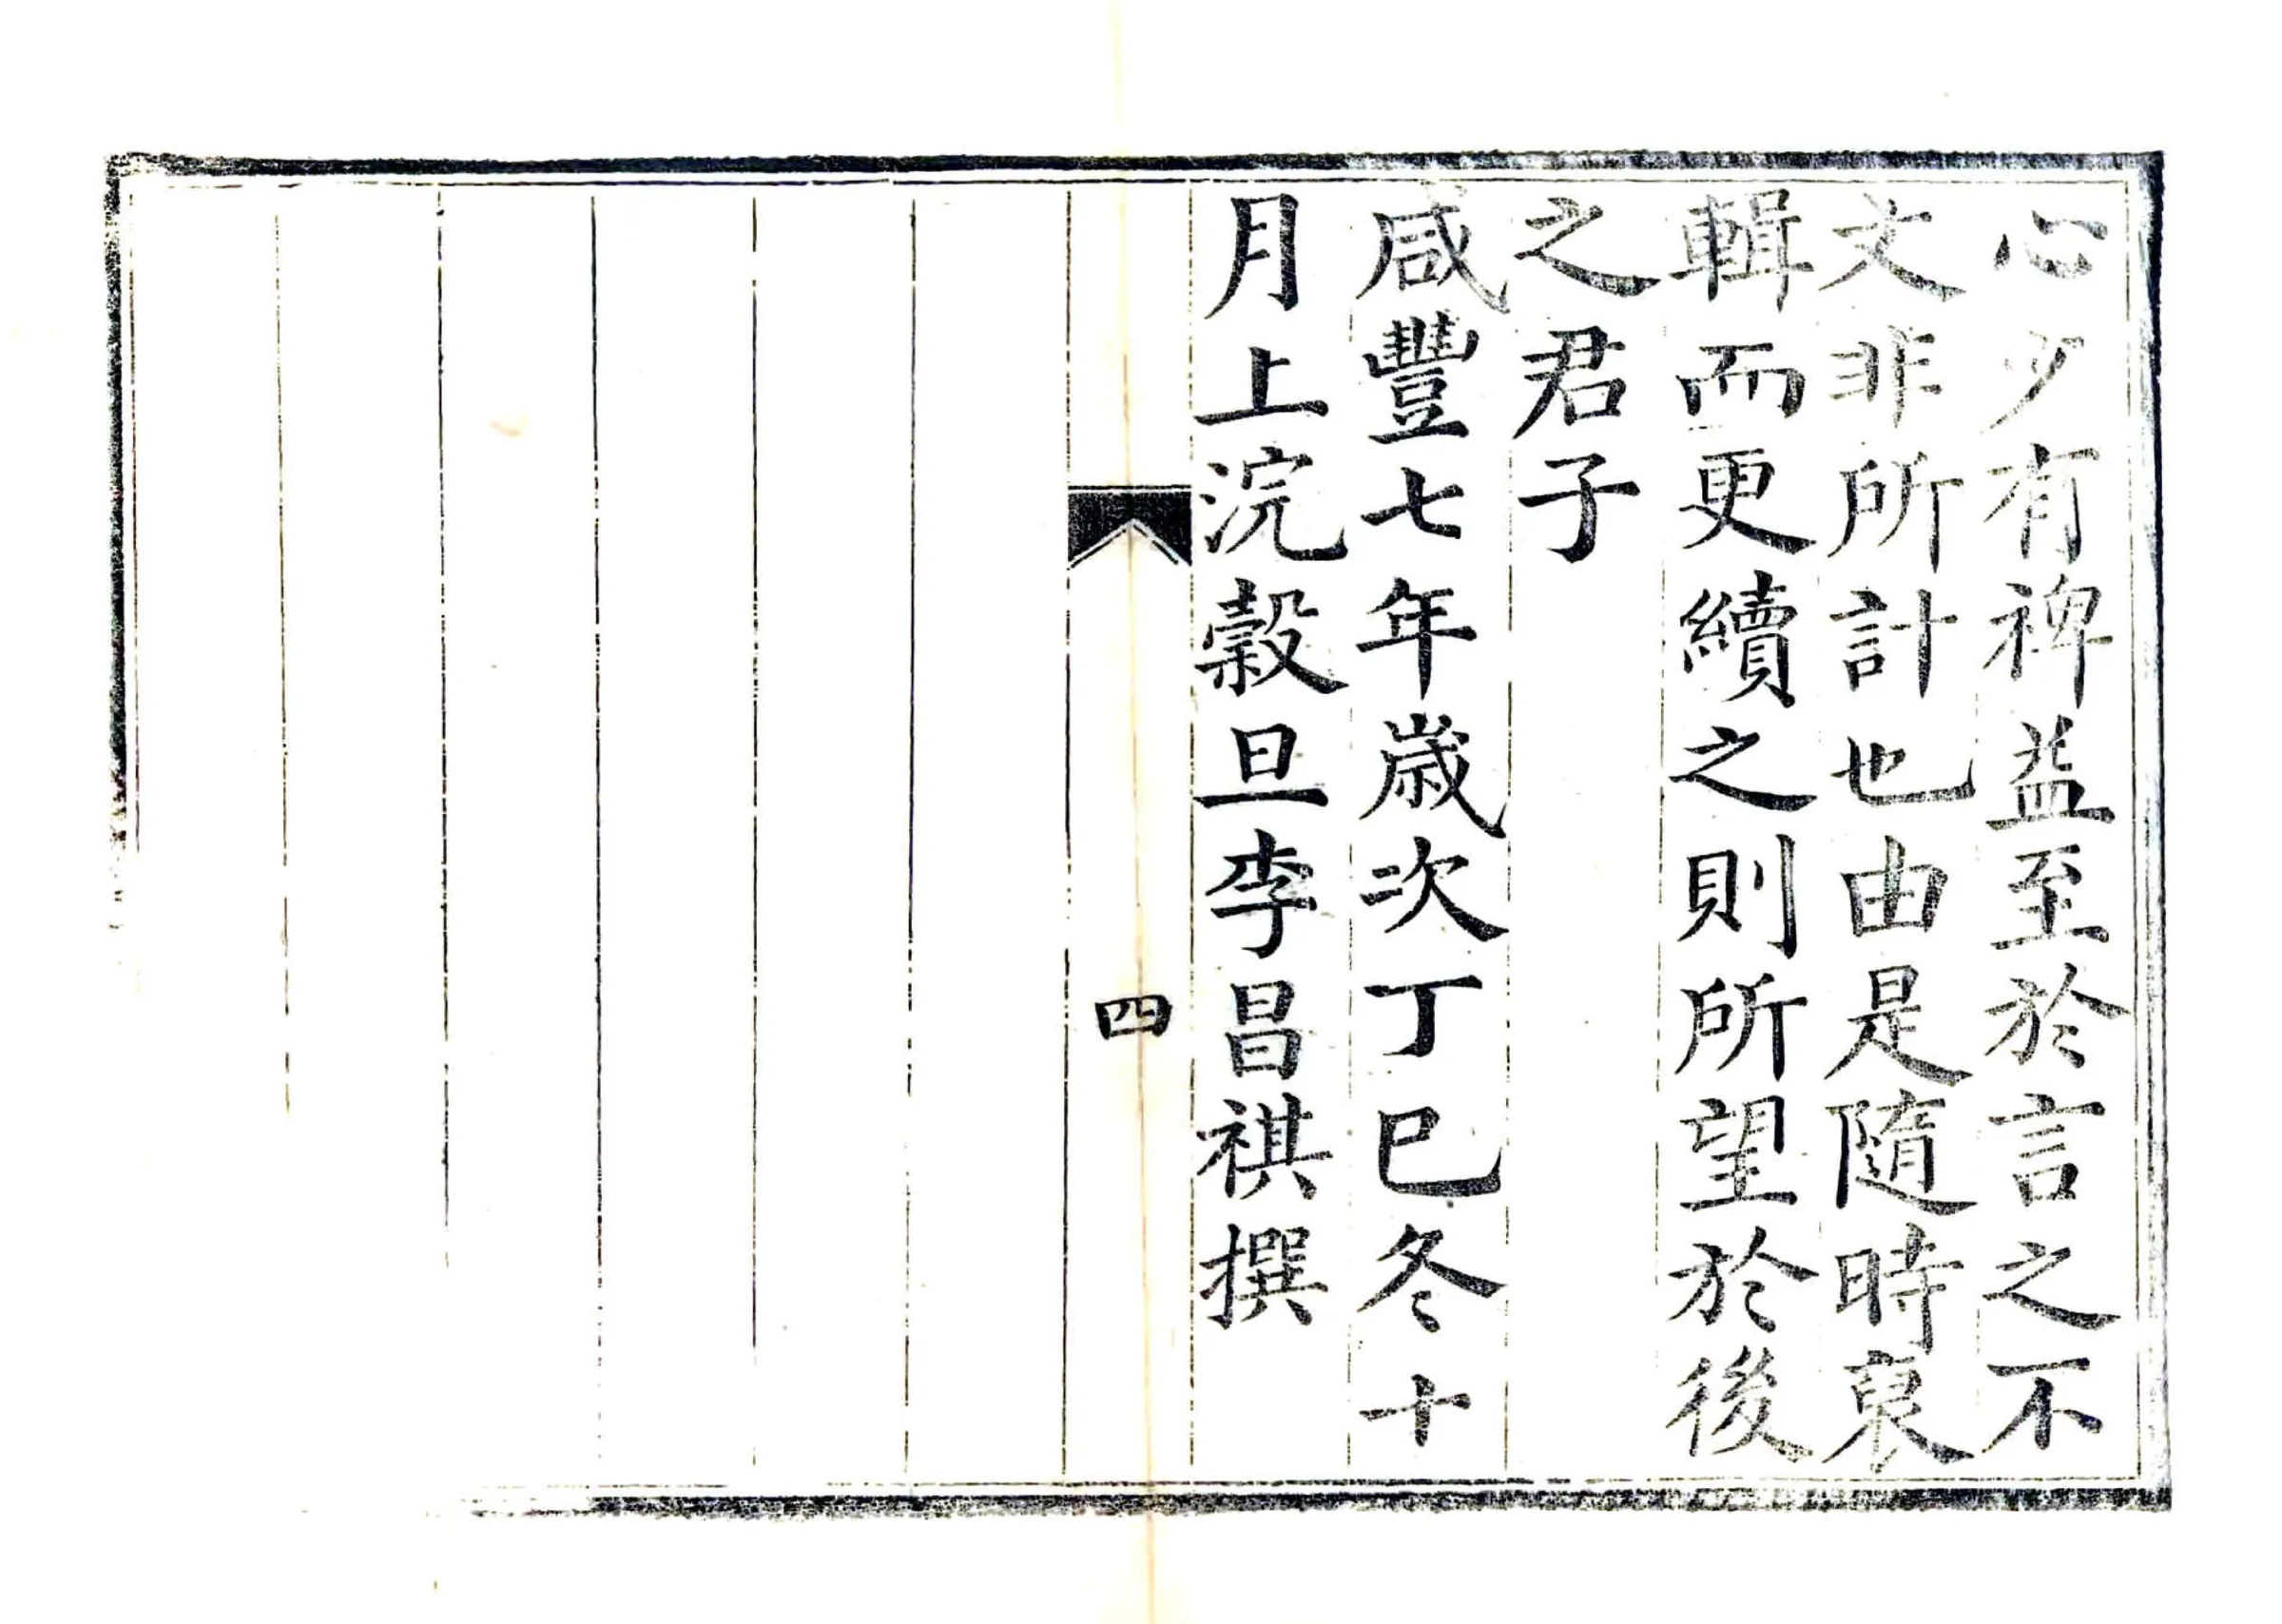 心少有裨益至於言之不
文非所計也由是隨時裒
輯而更續之則所望於後
之君子
咸豐七年歲次丁巳冬十
月上浣穀旦李昌祺撰
四